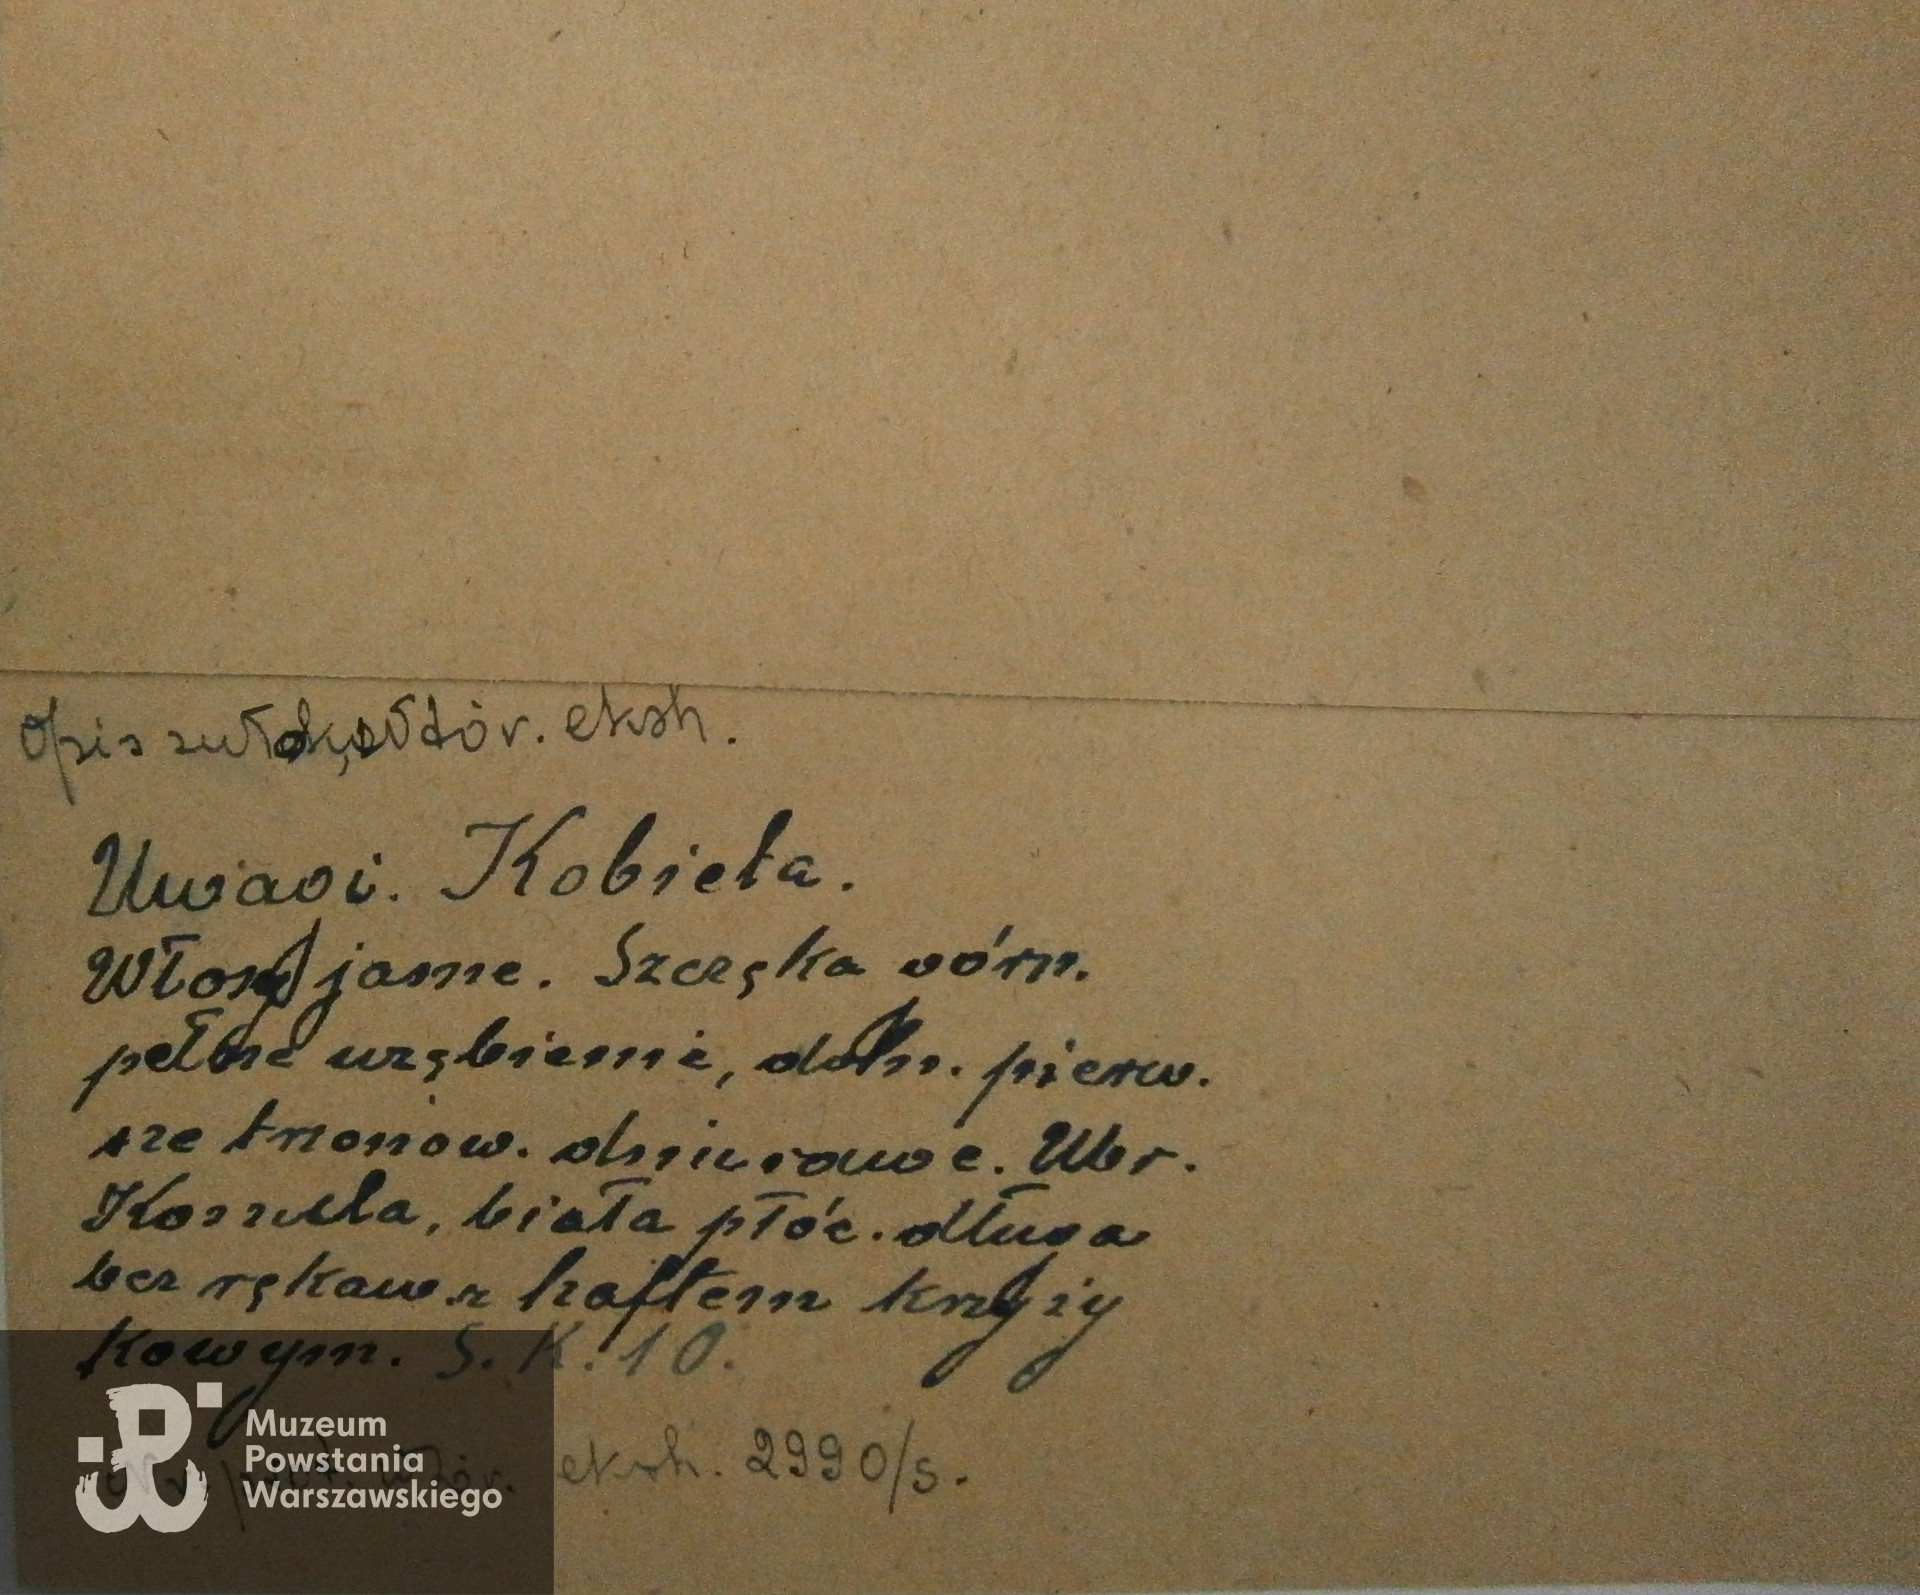 Opis zwłok, wtór. eksh.
Uwagi. Kobieta.
Włosy jasne. Szczęka górn.
pełne uzębienie, doln. pierw.
sze trzonow. dziurawe. Ubr.
Koszula, biała płóc. długa
bez rękaw. z haftem krzyży
kowym. S. K. 10.
wtór. eksh. 2990/s.
Muzeum
Powstania
Warszawskiego